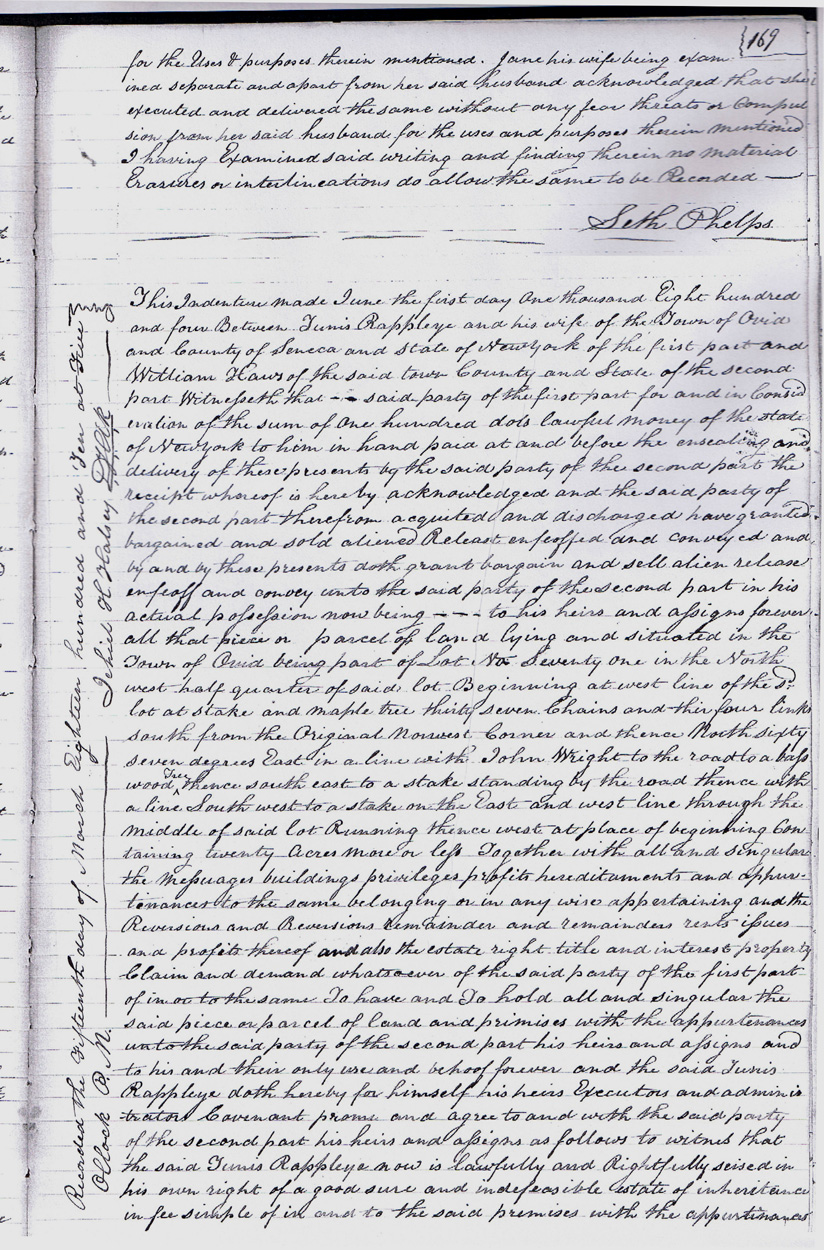 169
for the Uses & purposes therein mentioned. Jane his wife being exam
ined separate and apart from her said husband acknowledged that she
executed and delivered the same without any fear threats or Compul
sion from her said husband for the uses and purposes therein mentioned
I having Examined said writing and finding therein no material
Erasures or interlineations do allow the same to be Recorded —
Seth Phelps
This Indenture made June the first day One thousand Eight hundred
and four Between Tunis Rappleye and his wife of the Town of Ovid
and County of Seneca and State of New York of the first part and
William Haws of the said town County and State of the second
part Witnesseth that - - said party of the first part for and in Consid
eration of the sum of One hundred dols lawful money of the state
of New York to him in hand paid at and before the ensealing and
delivery of these presents by the said party of the second part the
receipt whereof is hereby acknowledged and the said party of
the second part therefrom acquited and discharged have granted
bargained and sold aliened Release enfeoffed and conveyed and
by and by these presents doth grant bargain and sell alien release
enfeoff and convey unto the said party of the second part in his
actual possession now being - - - to his heirs and assigns forever
all that piece or parcel of land lying and situated in the
Town of Ovid being part of Lot No Seventy one in the North
west half quarter of said lot Beginning at west line of the sd
lot at stake and maple tree thirty seven Chains and thir four links
south from the Original Norwest Corner and thence North sixty
seven degrees East in a line with John Wright to the road to a bass
wood Tree thence south east to a stake standing by the road thence with
a line South west to a stake on the East and west line through the
middle of said lot Running thence west at place of beginning Con
taining twenty Acres more or less Together with all and singular
the messuages buildings privileges profits hereditaments and appur-
tenances to the same belonging or in any wise appertaining and the
Reversions and Reversions remainder and remainders rents issues
and profits thereof and also the estate right title and interest property
Claim and demand whatsoever of the said party of the first part
of in or to the same To have and To hold all and singular the
said piece or parcel of land and primises with the appurtenances
unto the said party of the second part his heirs and assigns and
to his and their only use and behoof forever and the said Tunis
Rappleye doth hereby for himself his heirs Executors and adminis
trators Covenant promis and agree to and with the said party
of the second part his heirs and assigns as follows to witness that
the said Tunis Rappleye now is lawfully and Rightfully seised in
his own right of a good sure and indefeasible estate of inheritance
in fee simple of in and to the said premises with the appurtenances
Recorded the Fifteenth day of March Eighteen hundred and Ten at Five
OClock P M. — Jehiel H Halsey Clk